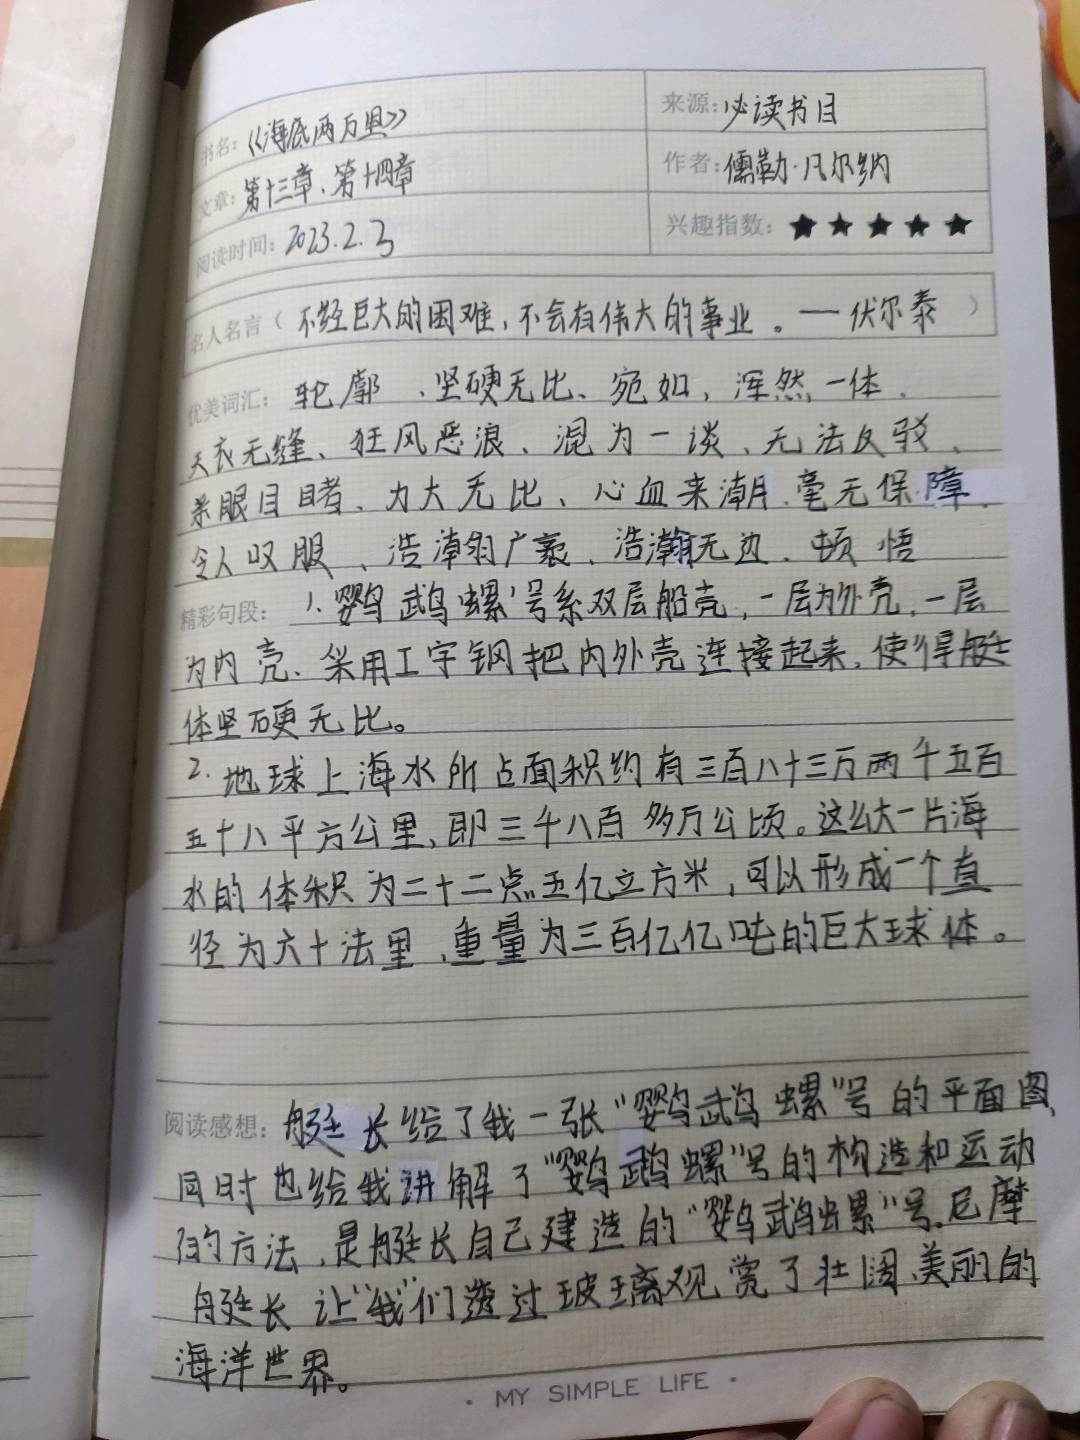 书名：《海底两万里》
来源：必读书目
文章：第十三章、第十四章
作者：儒勒·凡尔纳
阅读时间：2023.2.3
兴趣指数：★★★★★
名人名言（不经巨大的困难，不会有伟大的事业。——伏尔泰）
优美词汇：轮廓、坚硬无比、宛如，浑然一体、
天衣无缝、狂风恶浪、混为一谈、无法反驳、
亲眼目睹、力大无比、心血来潮、毫无保障、
令人叹服、浩瀚广袤、浩瀚无边、顿悟
精彩句段：1.鹦鹉螺'号系双层船壳，一层为外壳，一层
为内壳、采用工字钢把内外壳连接起来，使得艇
体坚硬无比。
2.地球上海水所占面积约有三百八十三万两千五百
五十八平方公里、即三千八百多万公顷。这么大一片海
水的体积为二十二点五亿立方米，可以形成一个直
径为六十法里，重量为三百亿亿吨的巨大球体。
阅读感想：艇长给了我一张“鹦鹉螺”号的平面图，
同时也给我讲解了“鹦鹉螺”号的构造和运动
的方法，是艇长自己建造的“鹦鹉螺”号。尼摩
艇长让“我”们透过玻璃观赏了壮阔、美丽的
海洋世界。
· MY SIMPLE LIFE ·